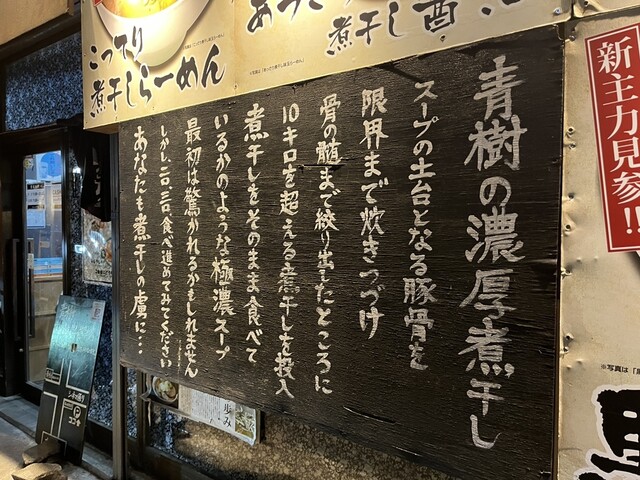 青樹の濃厚煮干し
スープの土台となる豚骨を
限界まで炊きつづけ
骨の髄まで絞り出したところに
10キロを超える煮干しを投入
煮干しをそのまま食べて
いるかのような極濃スープ
最初は驚かれるかもしれません
しかし、一口、一口、食べ進めてみてください
あなたも煮干しの虜に・・・
こってり
煮干しらーめん
煮干し
新主力見参!!
※写真は「